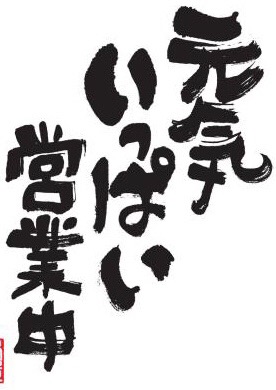 元気
いっぱい
営業中